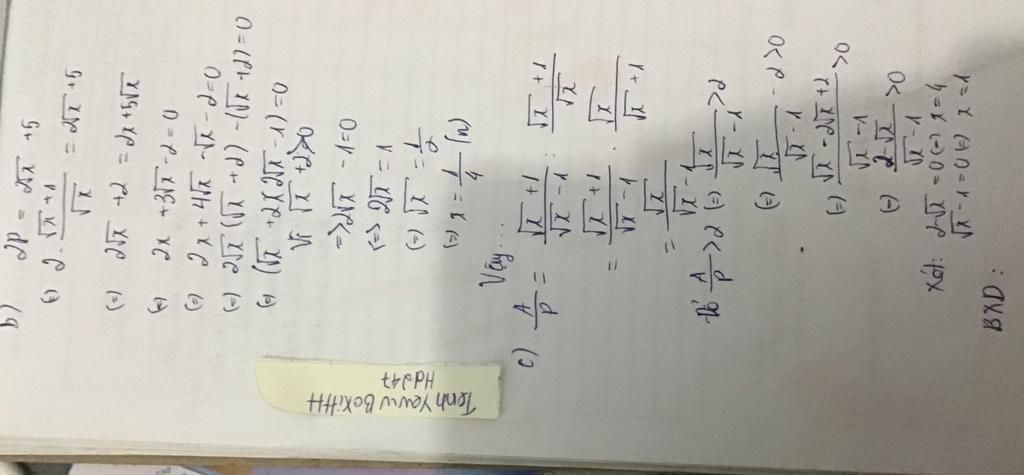 b) 2P = 2√x + 5
(=) 2 . (√x + 1)/√x = 2√x + 5
(=) 2√x + 2 = 2x + 5√x
(=) 2x + 3√x - 2 = 0
(=) 2x + 4√x - √x - 2 = 0
(=) 2√x (√x + 2) - (√x + 2) = 0
(=) (√x + 2)(2√x - 1) = 0
Vì √x + 2 > 0
=> 2√x - 1 = 0
<=> 2√x = 1
(=) √x = 1/2
(=) x = 1/4 (n)
Vậy...
c) A/P = (√x + 1)/(√x - 1) : (√x + 1)/√x
= (√x + 1)/(√x - 1) . √x/(√x + 1)
= √x/(√x - 1)
Để A/P > 2 (=) √x/(√x - 1) > 2
(=) √x/(√x - 1) - 2 > 0
(=) (√x - 2√x + 2)/(√x - 1) > 0
(=) 2√x/(√x - 1) > 0
Xét: 2√x = 0 (=) x = 4
√x - 1 = 0 (=) x = 1
BXD:
Tenh Yaww BoXiHH
Hd247